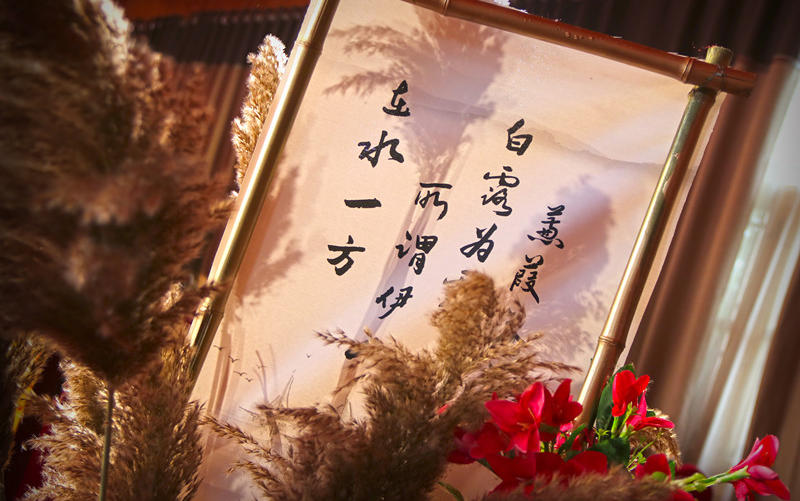 蒹葭
白露为
所谓伊
在水一方